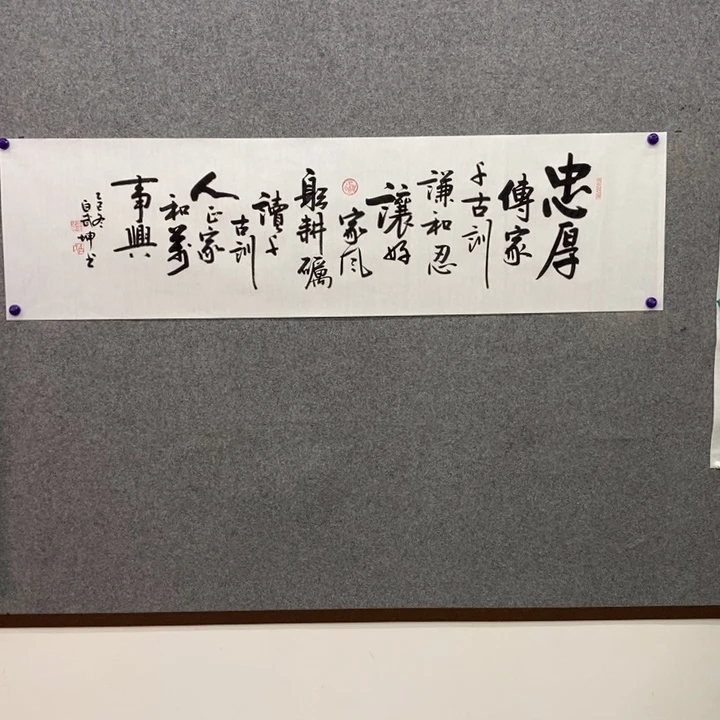 忠厚
傳家
千古訓
謙和忍
讓好
家风
躬耕礪
讀千
古訓
人正家
和萬
事興
白武坤书